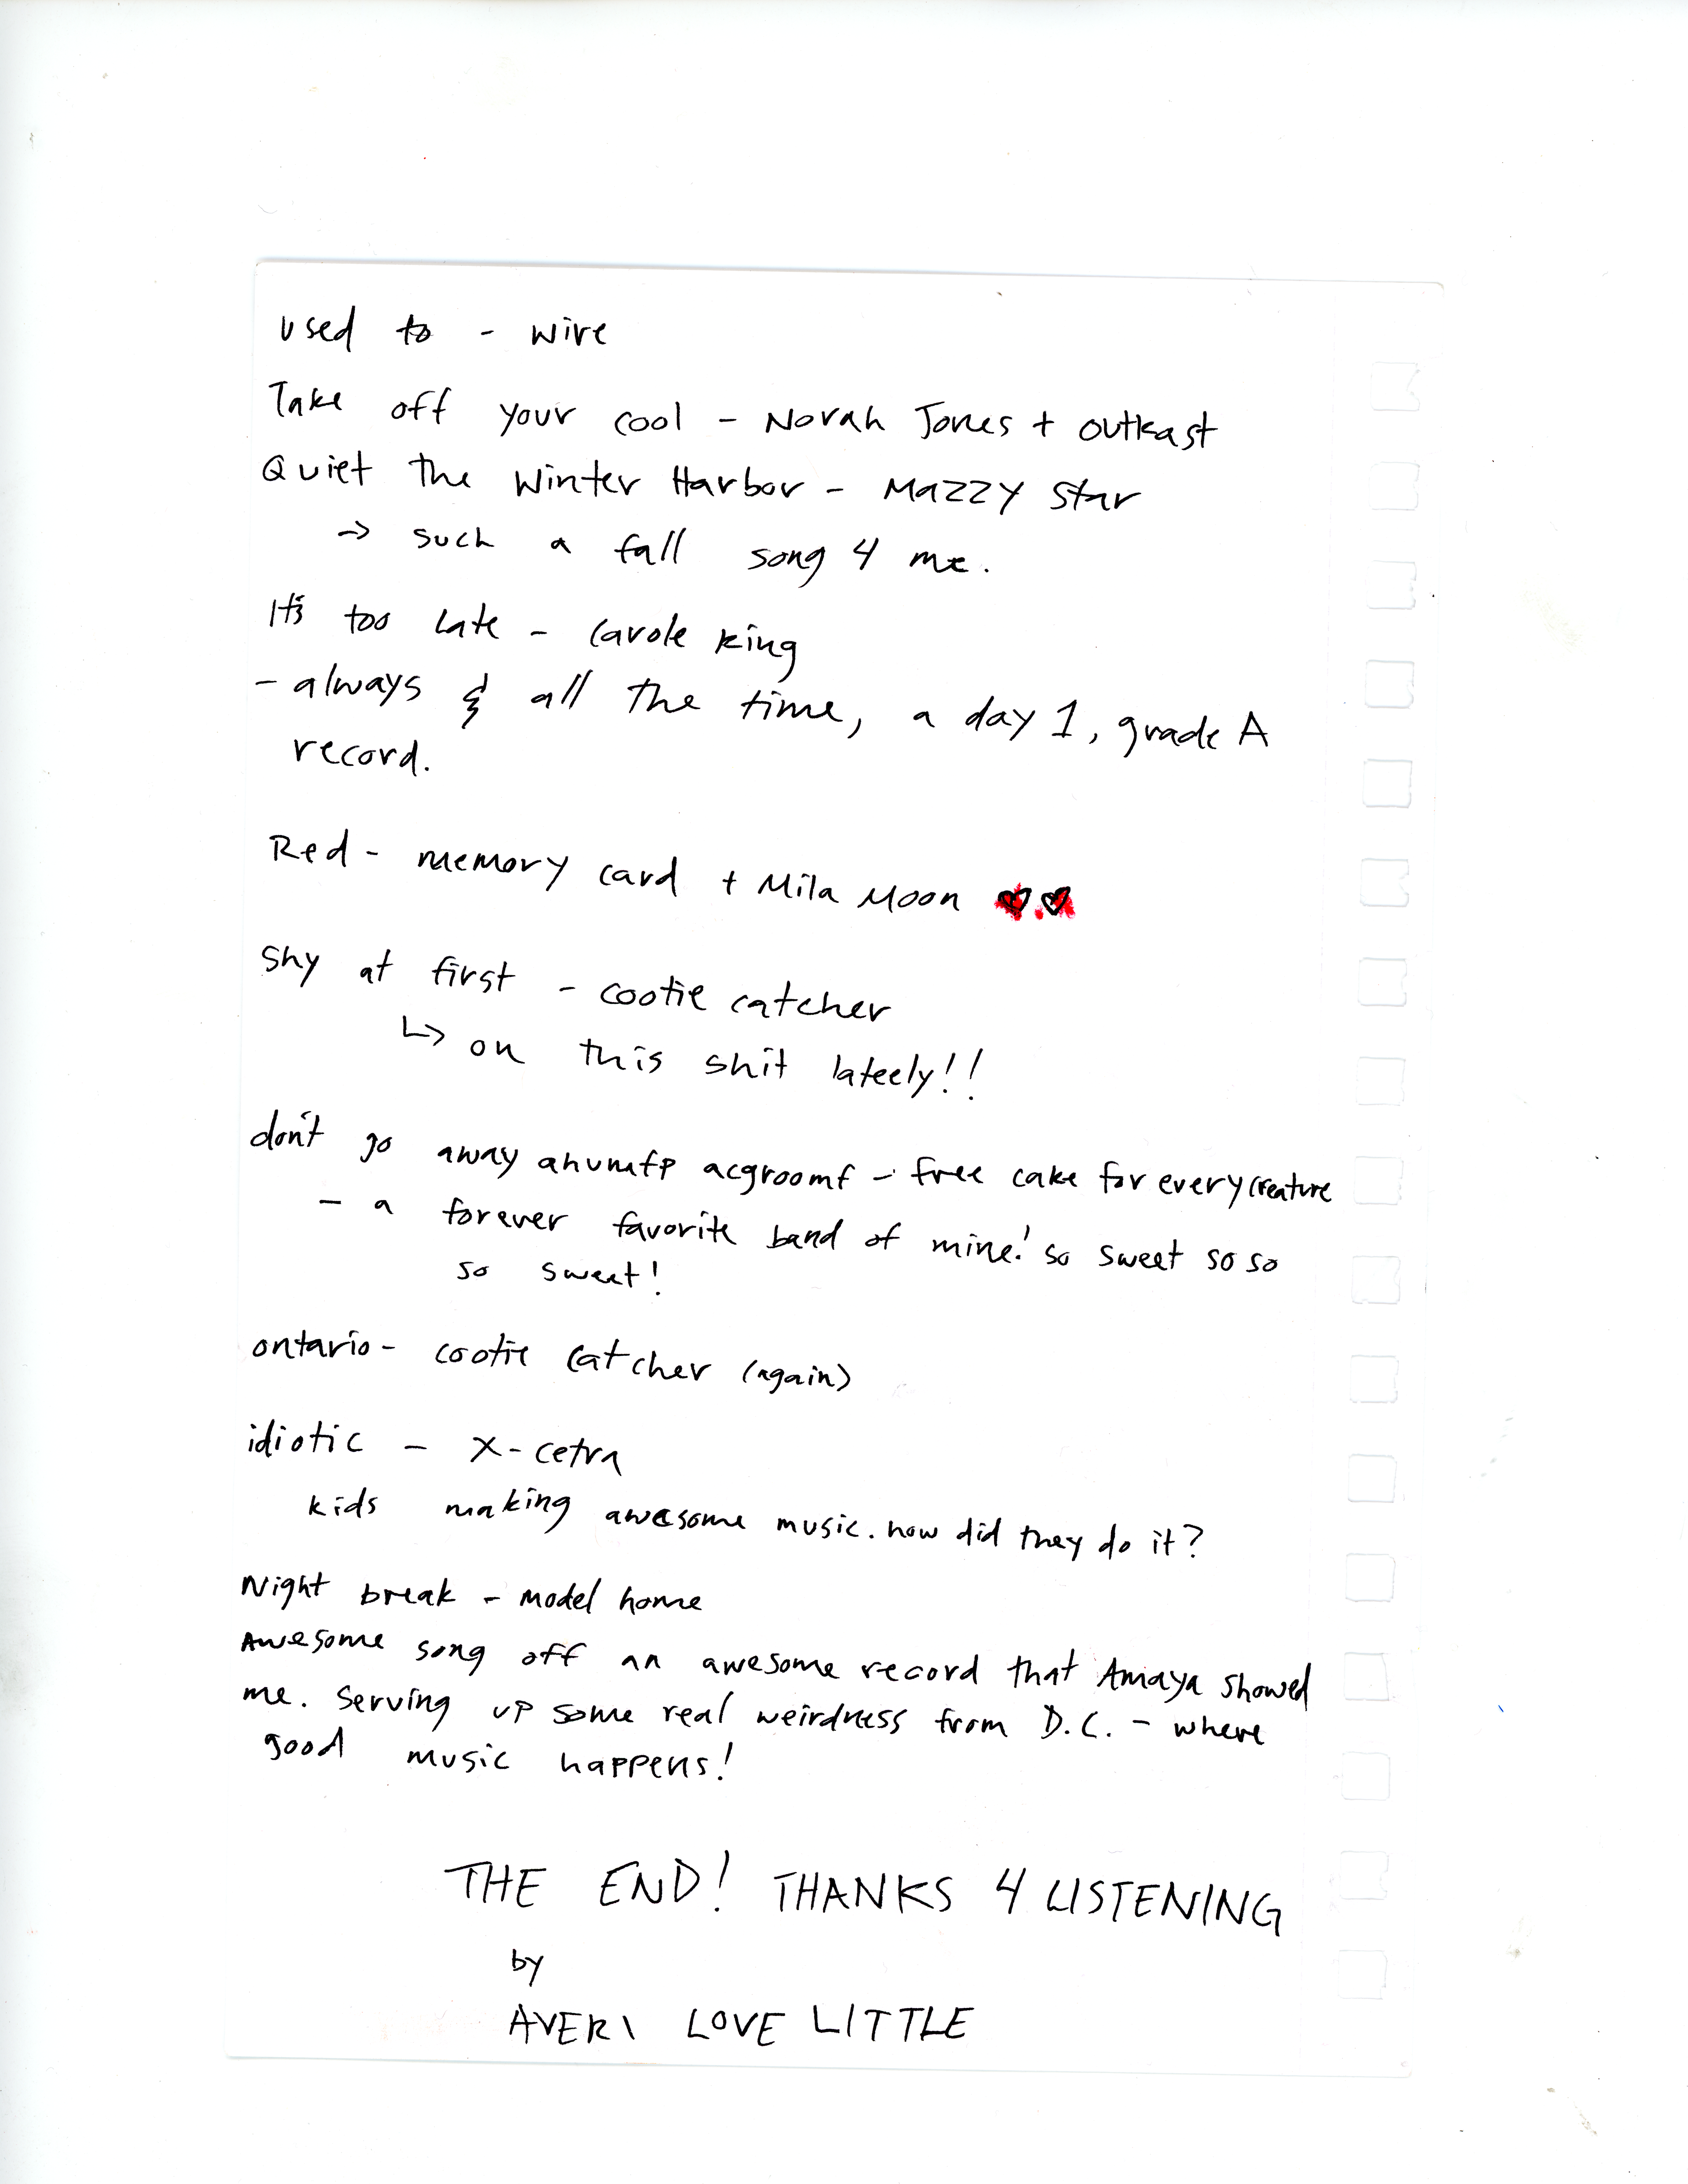 used to - wire
Take off your cool - Norah Jones + outkast
Quiet the Winter Harbor - Mazzy Star
→ such a fall song 4 me.
It's too late - Carole king
- always & all the time, a day 1, grade A
record.
Red - memory card + Mila Moon ♥♥
Shy at first - cootie catcher
↳ on this shit lateely!!
don't go away ahumfp acgroomf - free cake for every creature
- a forever favorite band of mine! so sweet so so
so sweet!
ontario - cootie catcher (again)
idiotic - X-cetra
kids making awesome music. how did they do it?
Night break - model home
Awesome song off an awesome record that Amaya showed
me. Serving up some real weirdness from D.C. - where
good music happens!
THE END! THANKS 4 LISTENING
by
AVERI LOVE LITTLE